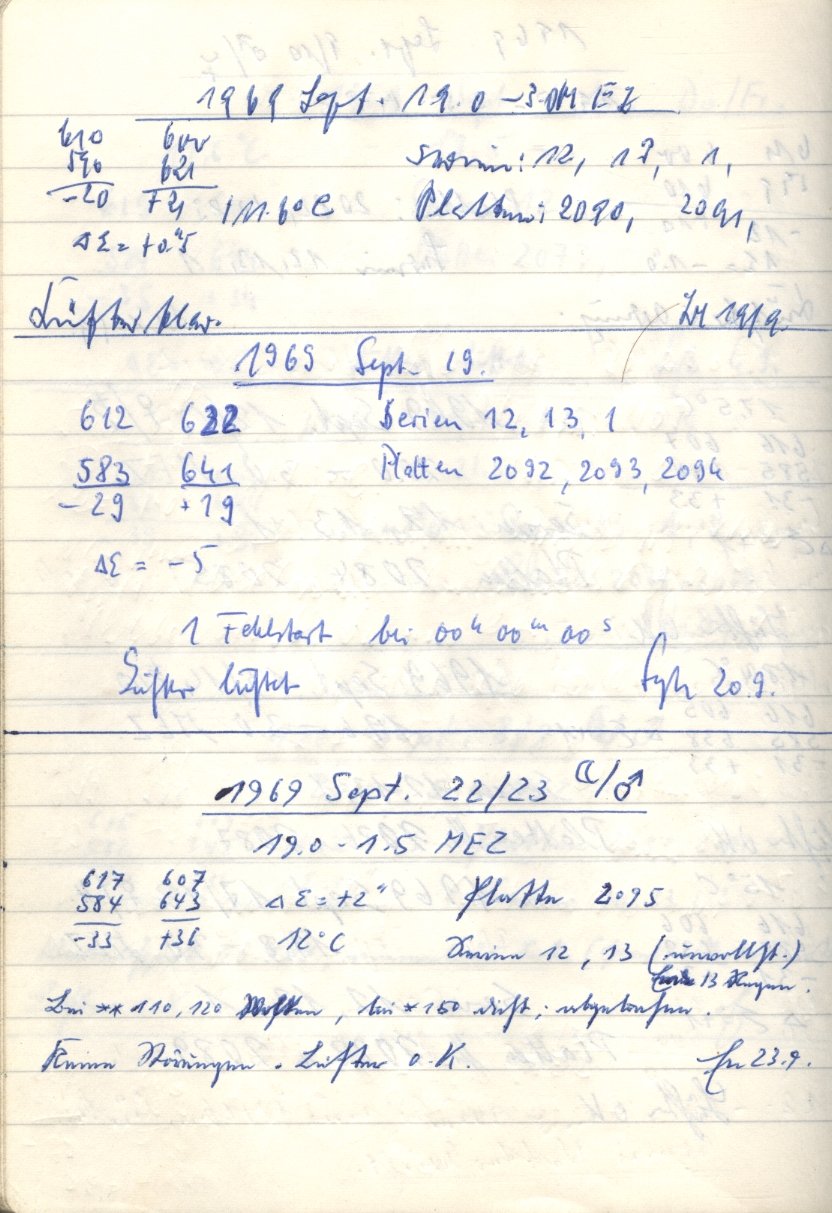 1969 Sept. 19.0 – 3.0 MEZ
610 600 Serien: 12, 13, 1,
590 621
-20 +21 / 11.6°C Platten: 2090, 2091,
ΔΣ = +0.5
Lüfter klar. 19/9.
1969 Sept. 19.
612 622 Serien 12, 13, 1
583 641 Platten 2092, 2093, 2094
-29 +19
ΔΣ = -5
1 Fehlstart bei 00h 00m 00s
Lüfter lüftet 20.9.
1969 Sept. 22/23 ☾/♂
19.0 - 1.5 MEZ
617 607 ΔΣ = +2" Platte 2095
584 643
-33 +36 12°C Serien 12, 13 (unvollst.)
13 Regen.
Bei ** 110, 120 Wolken, bei * 150 dicht; abgebrochen.
Keine Störungen. Lüfter o.K. 23.9.